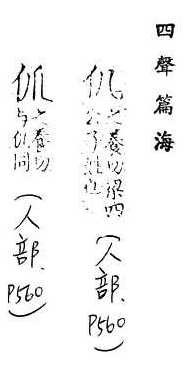 四聲篇海
仉 之養切梁四
公子姓也
(人部. P560)
之養切
与仉同
(人部. P560)